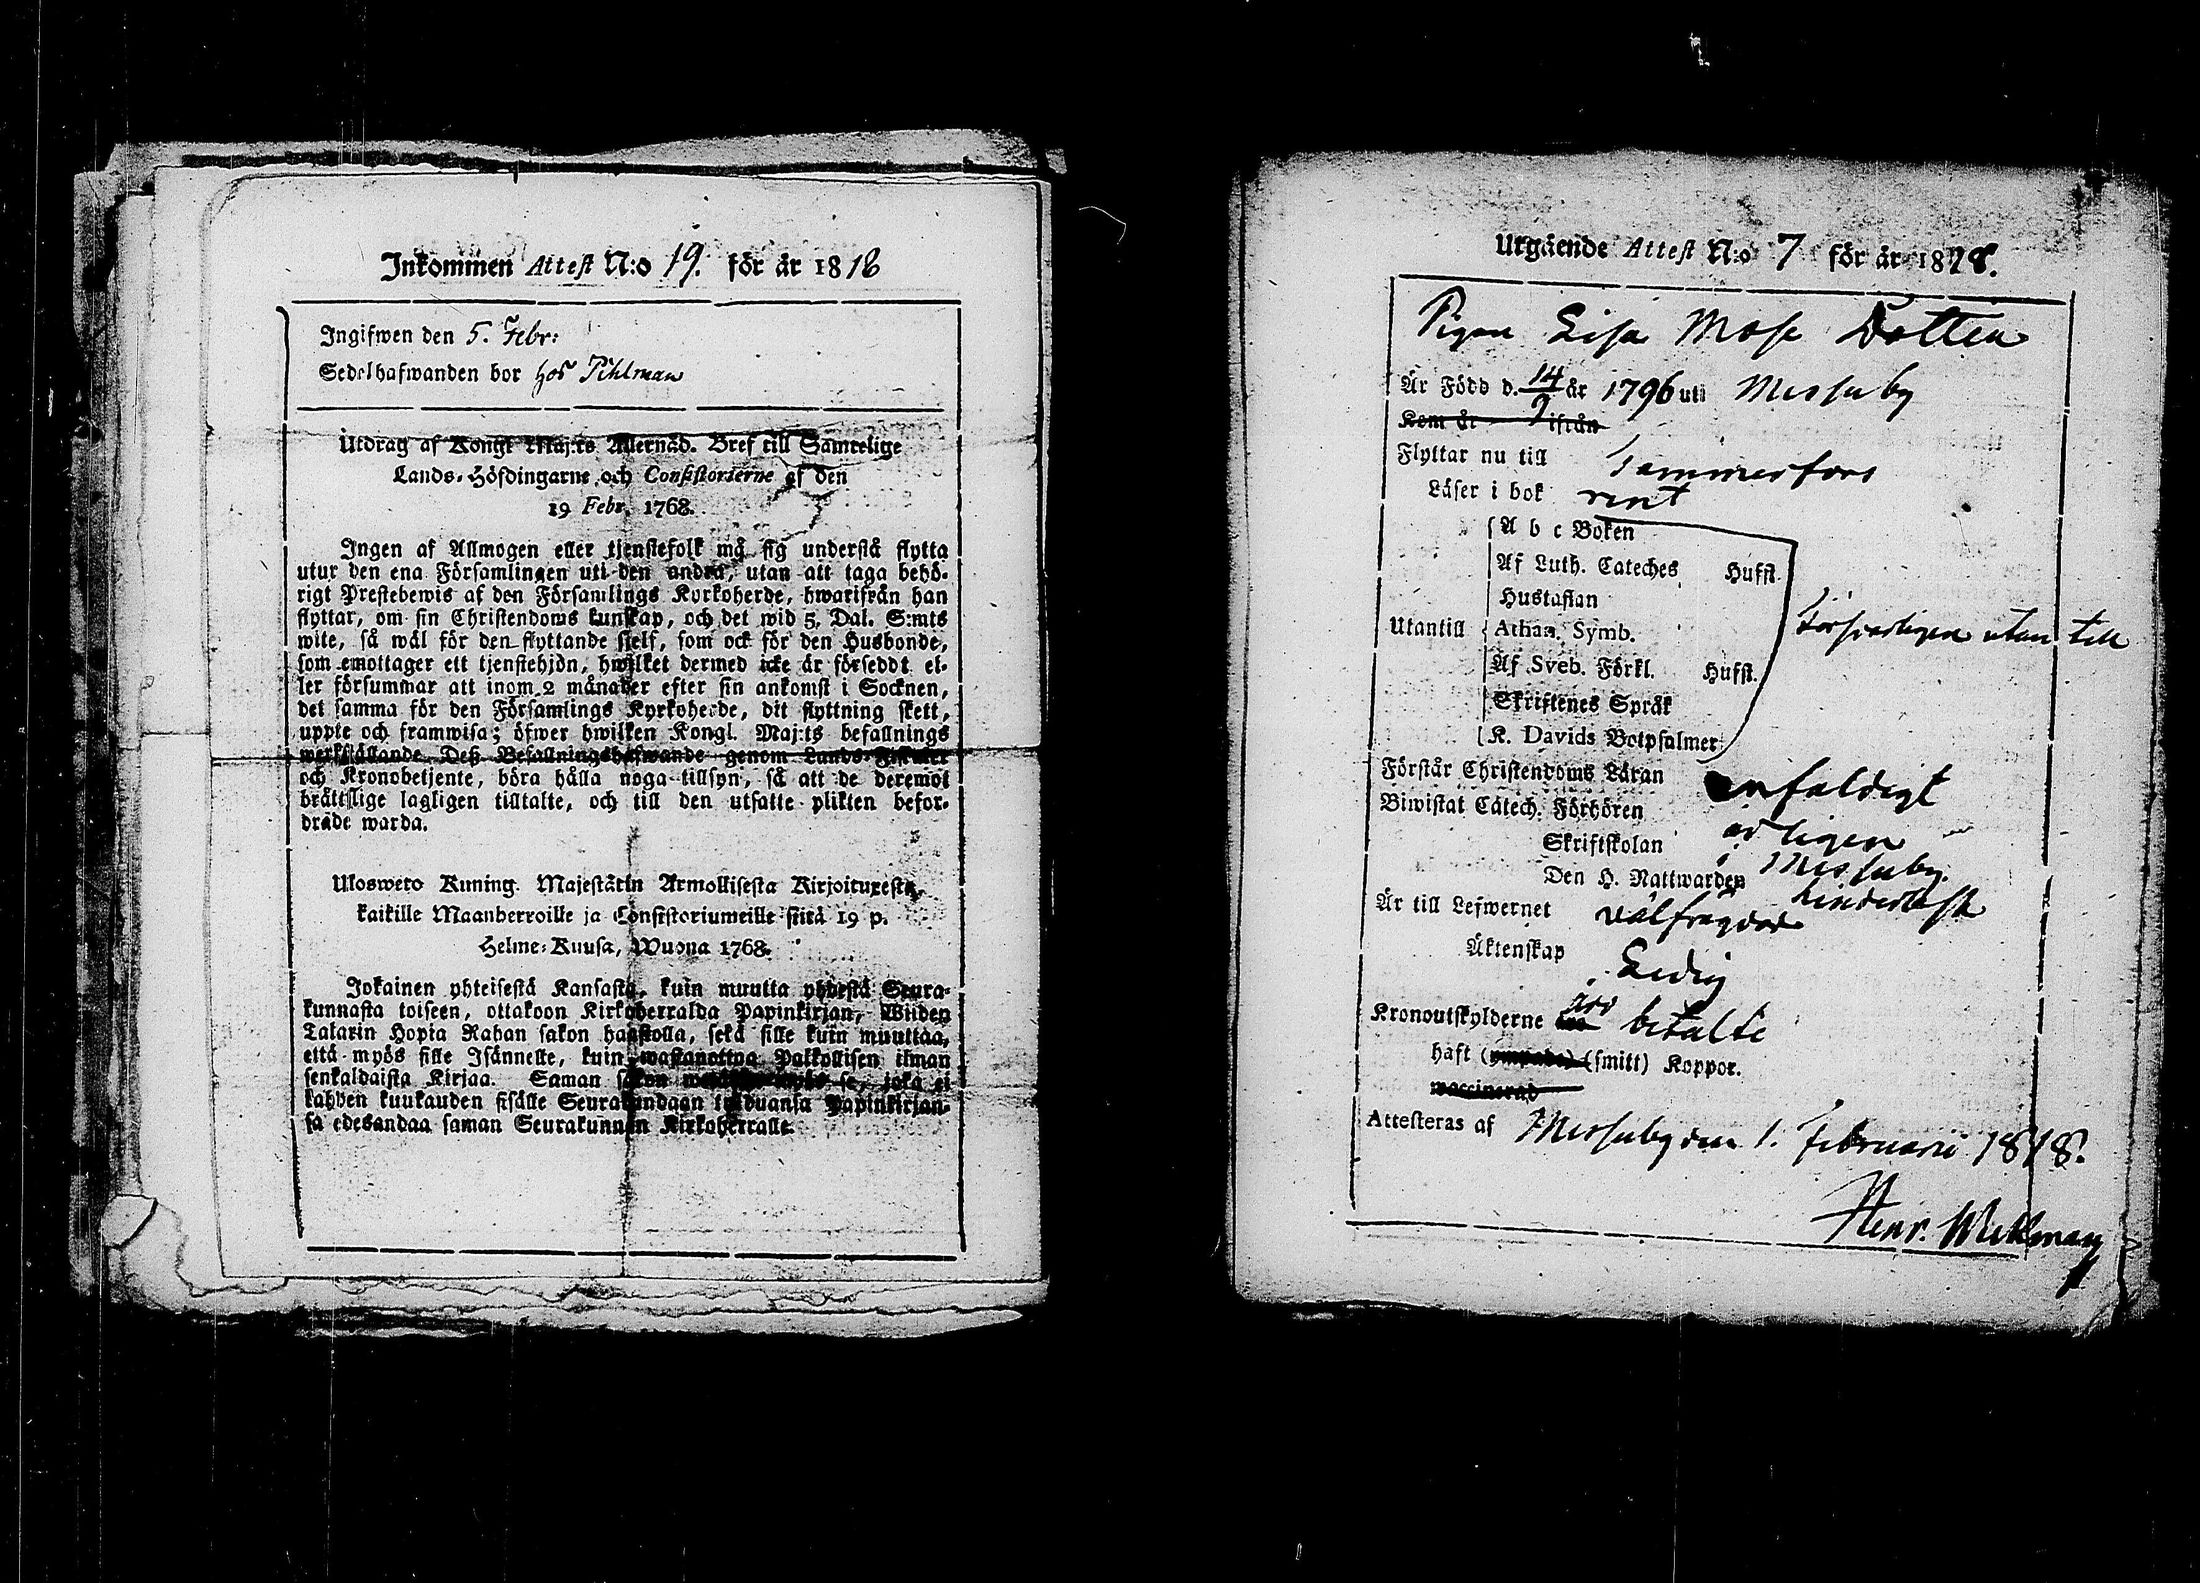 Inkommen Attest N:o 19. för år 1818
Ingifwen den 5. Febr:
Sedelhafwanden bor hos Pihlman
Utdrag af Kongl Maj:ts Allernåd. Bref till Samtelige
Lands-Höfdingarne och Consistorierne af den
19 Febr. 1768.
Ingen af Allmogen eller tjenstefolk må sig understå flytta
utur den ena Församlingen uti den andra, utan att taga behö-
rigt Prestebewis af den Församlings Kyrkoherde, hwarifrån han
flyttar, om sin Christendoms kunskap, och det wid 5. Dal. S:mts
wite, så wäl för den flyttande sjelf, som ock för den Husbonde,
som emottager ett tjenstehjon, hwilket dermed icke är försedt el-
ler försummar att inom 2 månader efter sin ankomst i Socknen,
det samma för den Församlings Kyrkoherde, dit flyttning skett,
uppte och framwisa; öfwer hwilken Kongl. Maj:ts befallnings
werkställande Deß Befallningshafwande genom Lands-Fiskaler
och Kronobetjente, böra hålla noga tillsyn, så att de deremot
brättslige lagligen tilltalte, och till den utsatte plikten befor-
drade warda.
Uloswero Kuning. Majestätin Armollisesta Kirjoituxesta,
kaikille Maanherroille ja Consistoriumeille siitä 19 p.
Helme-Kuusa, Wuonna 1768.
Jokainen yhteisestä Kansasta, kuin muutta yhdestä Seura-
kunnasta toiseen, ottakoon Kirkoherralda Papinkirjan, Wiiden
Talarin Hopia Rahan sakon haastolla, sekä sille kuin muuttaa,
että myös sille Isännelle, kuin wastanottaa Palkollisen ilman
senkaldaista Kirjaa. Saman sakon se, joka ei
kahden kuukauden sisälle Seurakundaan tulduansa Papinkirjan-
sa edesandaa saman Seurakunnan Kirkoherralle.
Utgående Attest N:o 7 för år 1818.
Pigan Lisa Mose Dotter
Är Född d. 14/9 år 1796 uti Messuby
Kom år ifrån
Flyttar nu till Tammerfors
Läser i bok rent
A b c Boken
Af Luth. Cateches Hufst.
Hustaflan
Utantill Athan. Symb. utan till
Af Sveb. Förkl. Hufst.
Skriftenes Språk
K. Davids Botpsalmer
Förstår Christendoms Läran enfaldigt
Biwistat Catech. Förhören årligen
Skriftskolan i Messuby
Den H. Nattwarden
Är till Lefwernet välfrägdad
Äktenskap Ledig
Kronoutskylderne betalte
haft (ympade) (smitt) Koppor.
vaccinerad
Attesteras af Messuby den 1. Februarii 1818.
Henr.